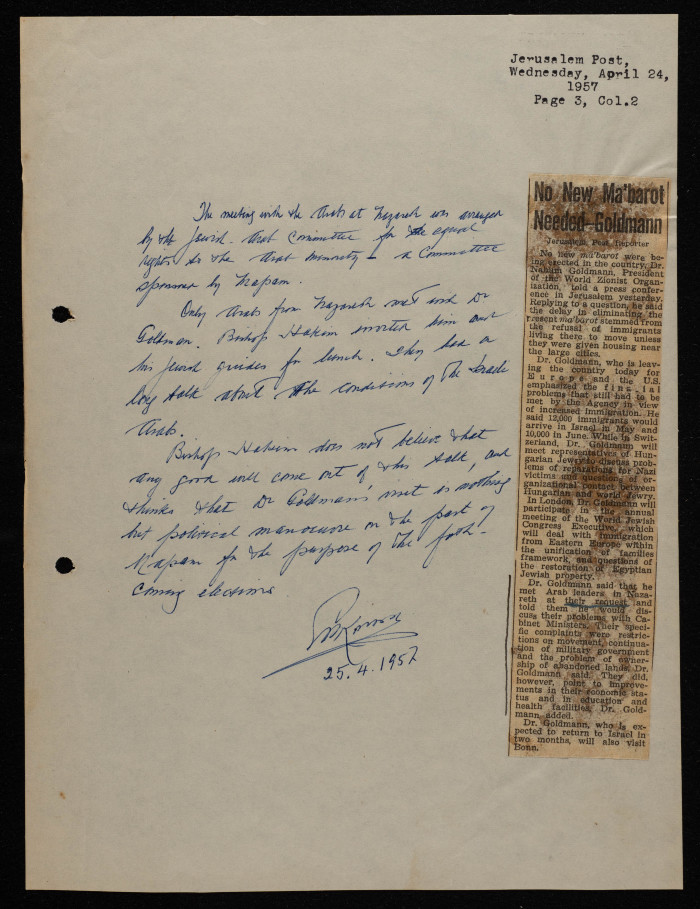 Jerusalem Post,
Wednesday, April 24,
1957
Page 3, Col.2
The meeting with the Arabs at Nazareth was arranged
by the Jewish - Arab Committee for the equal
rights to the Arab minority - a Committee
sponsor by Mapam.
Only Arabs from Nazareth met with Dr
Goldman. Bishop Hakim invited him and
his Jewish guides for lunch. They had a
long talk about the conditions of the Israeli
Arabs.
Bishop Hakim does not believe that
any good will come out of this talk, and
thinks that Dr Goldman's visit is nothing
but political manoeuvre on the part of
Mapam for the purpose of the forth-
coming elections.
25.4.1957
No New Ma'barot
Needed-Goldmann
Jerusalem Post Reporter
No new ma'barot were be-
ing erected in the country, Dr.
Nahum Goldmann, President
of the World Zionist Organ-
ization, told a press confer-
ence in Jerusalem yesterday.
Replying to a question, he said
the delay in eliminating the
present ma'barot stemmed from
the refusal of immigrants
living there to move unless
they were given housing near
the large cities.
Dr. Goldmann, who is leav-
ing the country today for
Europe and the U.S.
emphasized the financial
problems that still had to be
met by the Agency in view
of increased immigration. He
said 12,000 immigrants would
arrive in Israel in May and
10,000 in June. While in Swit-
zerland, Dr. Goldmann will
meet representatives of Hun-
garian Jewry to discuss prob-
lems of reparations for Nazi
victims and question of or-
ganizational contact between
Hungarian and world Jewry.
In London, Dr. Goldmann will
participate in the annual
meeting of the World Jewish
Congress Executive, which
will deal with immigration
from Eastern Europe within
the unification of families
framework, and questions of
the restoration of Egyptian
Jewish property.
Dr. Goldmann said that he
met Arab leaders in Naza-
reth at their request and
told them he would dis-
cuss their problems with Ca-
binet Ministers. Their speci-
fic complaints were restric-
tions on movement, continua-
tion of military government
and the problem of owner-
ship of abandoned lands, Dr.
Goldmann said. They did,
however, point to improve-
ments in their economic sta-
tus and in education and
health facilities, Dr. Gold-
mann added.
Dr. Goldmann, who is ex-
pected to return to Israel in
two months, will also visit
Bonn.